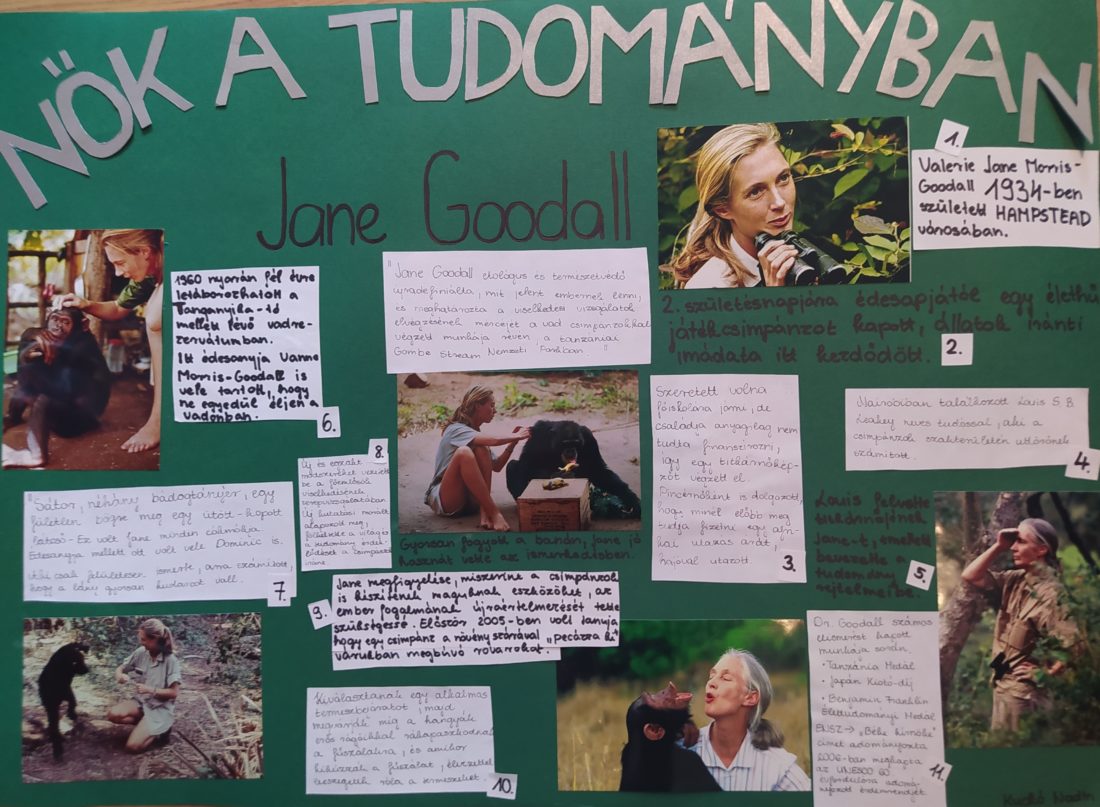 NŐK A TUDOMÁNYBAN
Jane Goodall
1.
Valerie Jane Morris-
Goodall 1934-ben
született HAMPSTEAD
városában.
2. születésnapjára édesapjától egy élethű
játékcsimpánzot kapott, állatok iránti
imádata itt kezdődött.
2.
Szeretett volna
főiskolára járni, de
családja anyagilag nem
tudta finanszírozni,
így egy titkárnőkép-
zőt végzett el.
Pincérnőként is dolgozott,
hogy minél előbb meg
tudja fizetni egy af-
rikai utazás árát,
hajóval utazott.
3.
Nairobiban találkozott Louis S. B.
Leakey neves tudóssal, aki a
csimpánzok szakterületén úttörőnek
számított.
4.
Louis felvette
titkárnőjének
Jane-t, emellett
bevezette a
tudomány
rejtelmeibe.
5.
"Jane Goodall etológus és természetvédő
újradefiniálta, mit jelent embernek lenni,
és meghatározta a viselkedési vizsgálatok
elvégzésének mércéjét a vad csimpánzokkal
végzett munkája révén, a tanzániai
Gombe Stream Nemzeti Parkban."
1960 nyarán fél évre
letáborozhatott a
Tanganyika-tó
mellék lévő vadre-
zervátumban.
Itt édesanyja Vanne
Morris-Goodall is
vele tartott, hogy
ne egyedül éljen a
vadonban.
6.
"Sátor, néhány bádogtányér, egy
fületlen bögre meg egy ütött-kopott
- Ez volt Jane minden cókmókja.
Édesanyja mellett ott volt vele Dominic is.
csak felületesen ismerte, arra számított,
hogy a lány gyorsan kudarcot vall.
7.
8.
Új és
módszereket vezetett
be a főemlősök
viselkedésének
Új kutatási
alapozott meg,
felkeltette a világ és
a tudomány érdek-
lődését a csimpánzok
iránt.
Gyorsan fogyott a banán, Jane jó
hasznát vette az ismerkedésben.
9.
Jane megfigyelése, miszerint a csimpánzok
is készítenek maguknak eszközöket, az
ember fogalmának újraértelmezését tette
szükségessé. Először 2005-ben volt tanúja
hogy egy csimpánz a növény szárával "pecázza ki"
várukban megbúvó rovarokat.
Kiválasztanak egy alkalmas
termeszbejáratot, majd
megvárják míg a hangyák
erős rágóikkal rákapaszkodnak
a fűszálakra, és amikor
kihúzzák a fűszálat, élvezettel
leszegetik róla a termeszeket.
10.
Dr. Goodall számos
elismerést kapott
munkája során.
• Tanzánia Medál
• Japán Kiotó-díj
• Benjamin Franklin
Élettudományi Medál
ENSZ → "Béke hírnöke"
címet adományozta
2006-ban megkapta
az UNESCO 60.
évfordulóra adomá-
nyozott érdemrendjét.
11.